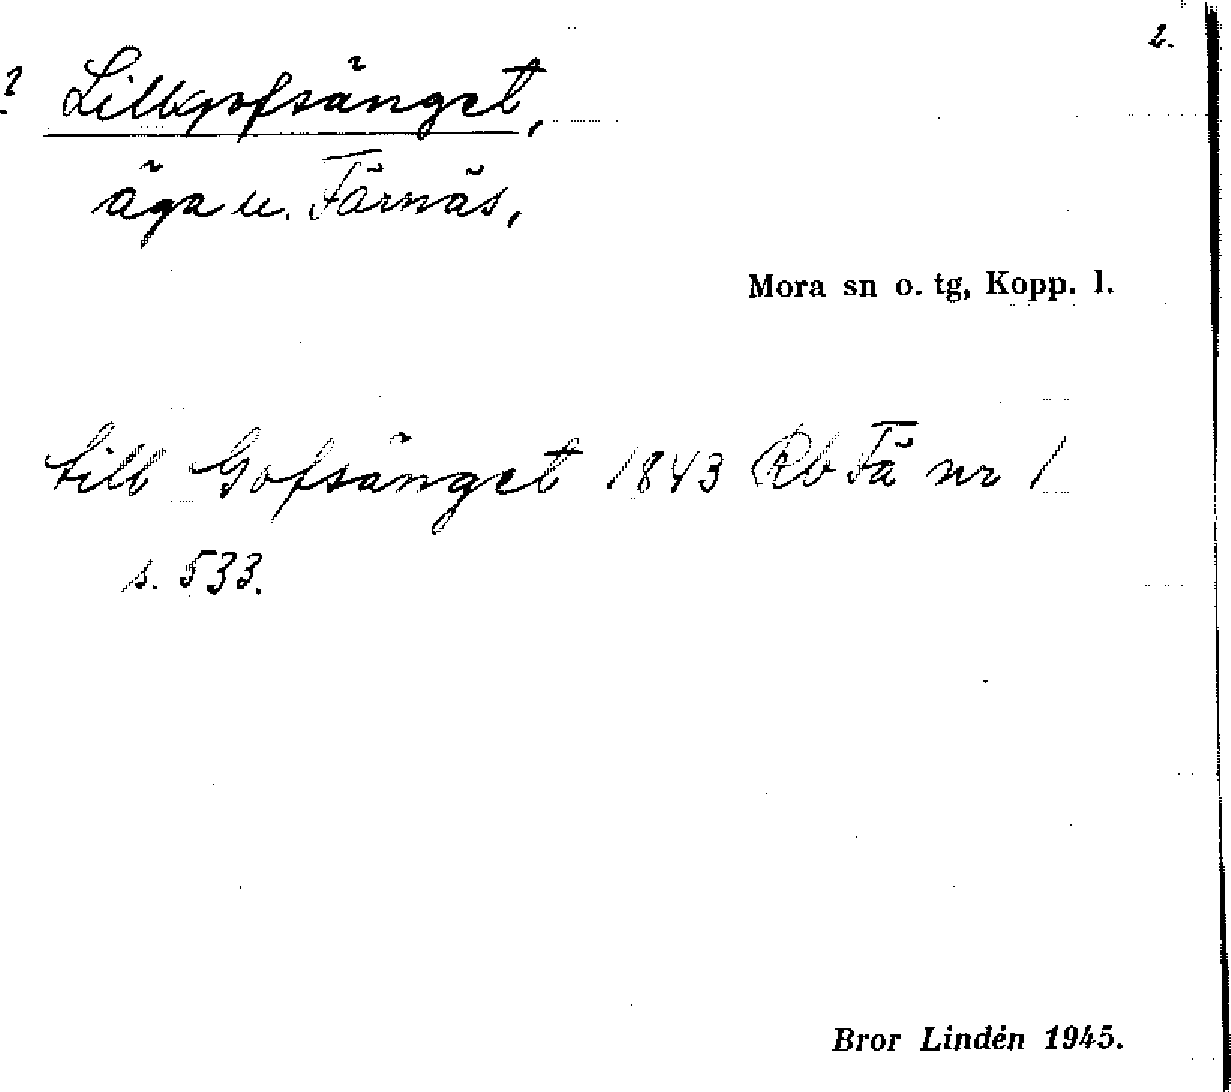 2.
? Lillgofsänget,
äga u. Färnäs,
Mora sn o. tg, Kopp. l.
till Gofsänget 1843 Rb Fä nr 1
s. 533.
Bror Lindén 1945.